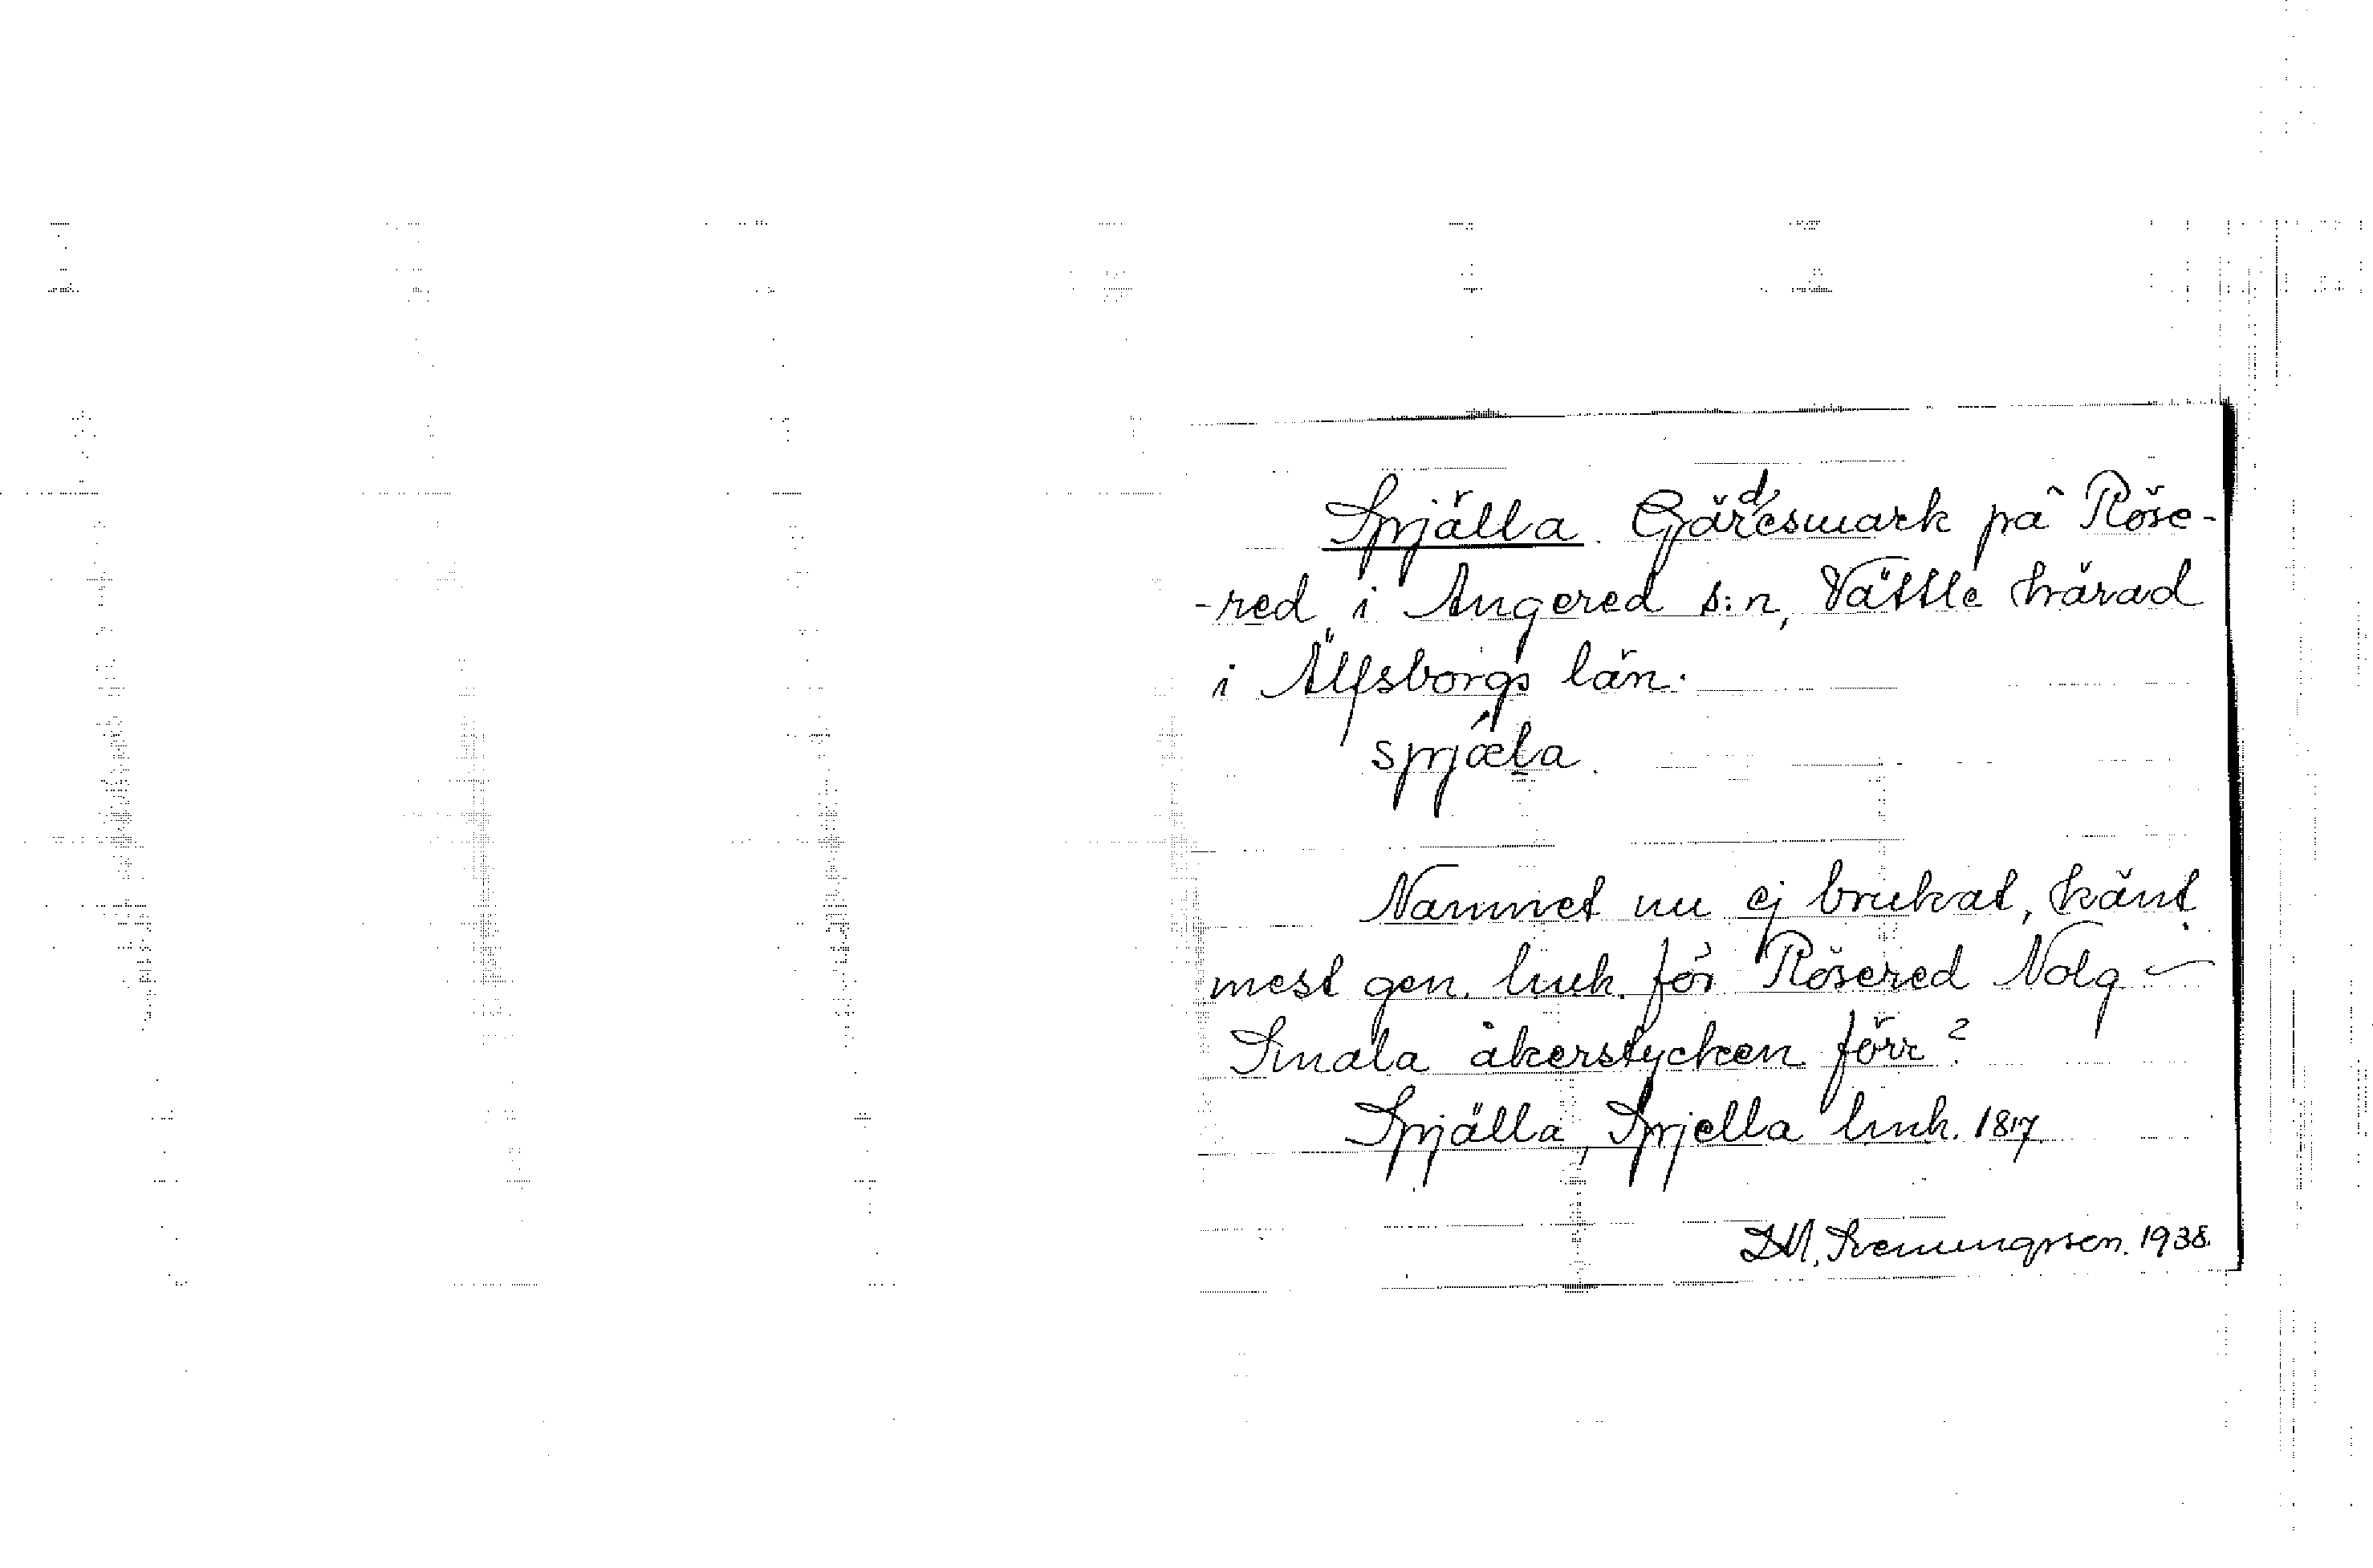 Spjälla. Gärdesmark på Röse-
-red i Angered s:n, Vättle härad
i Älfsborgs län.
spjæ̍la.
Namnet nu ej brukat, känt
mest gen. luk. för Rösered Nolg
Smala åkerstycken förr?
Spjälla, Spjella luk. 1817
D.M. Svenungsson. 1938.